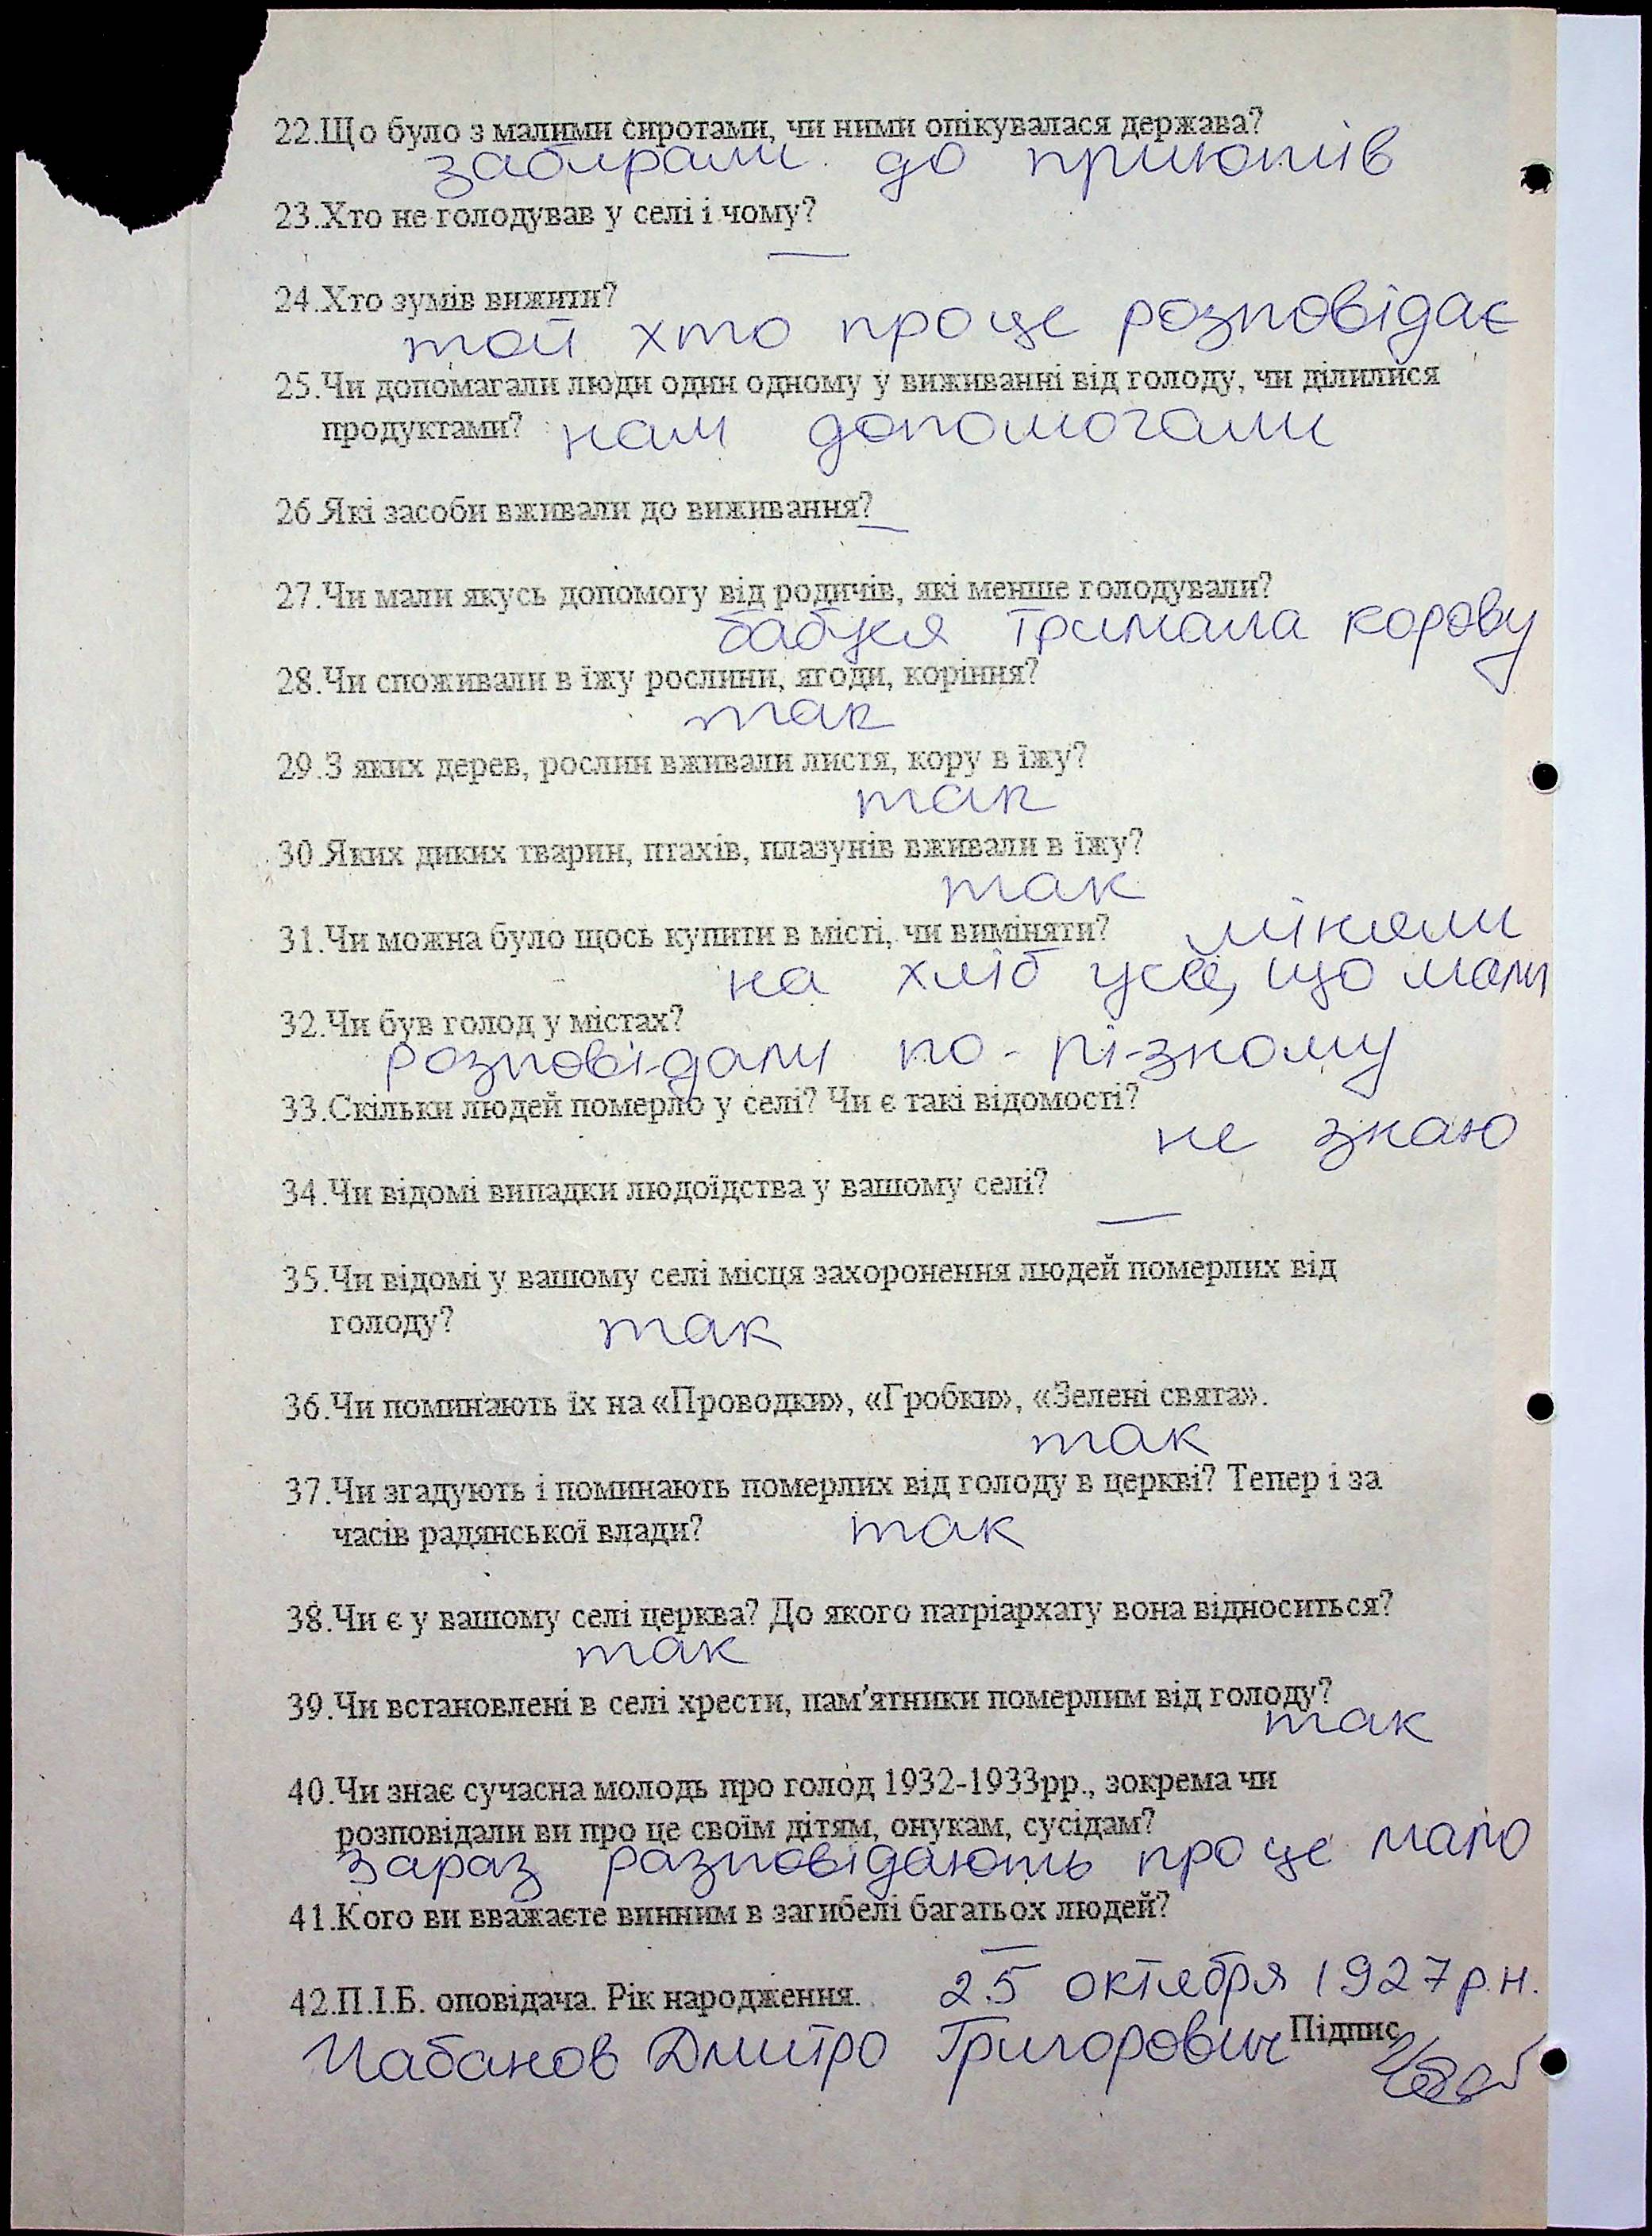 22.Що було з малими сиротами, чи ними опікувалася держава?
забирали до приютів
23.Хто не голодував у селі і чому?
—
24.Хто зумів вижити?
той хто про це розповідає
25.Чи допомагали люди один одному у виживанні від голоду, чи ділилися
продуктами? нам допомогали
26.Які засоби вживали до виживання?
—
27.Чи мали якусь допомогу від родичів, які менше голодували?
бабуся тримала корову
28.Чи споживали в їжу рослини, ягоди, коріння?
так
29.З яких дерев, рослин вживали листя, кору в їжу?
так
30.Яких диких тварин, птахів, плазунів вживали в їжу?
так
31.Чи можна було щось купити в місті, чи виміняти? міняли
на хліб усе, що мали
32.Чи був голод у містах?
розповідали по-різному
33.Скільки людей померло у селі? Чи є такі відомості?
не знаю
34.Чи відомі випадки людоїдства у вашому селі?
—
35.Чи відомі у вашому селі місця захоронення людей померлих від
голоду? так
36.Чи поминають їх на «Проводки», «Гробки», «Зелені свята».
так
37.Чи згадують і поминають померлих від голоду в церкві? Тепер і за
часів радянської влади? так
38.Чи є у вашому селі церква? До якого патріархату вона відноситься?
так
39.Чи встановлені в селі хрести, пам’ятники померлим від голоду?
так
40.Чи знає сучасна молодь про голод 1932-1933рр., зокрема чи
розповідали ви про це своїм дітям, онукам, сусідам?
Зараз розповідають про це мало
41.Кого ви вважаєте винним в загибелі багатьох людей?
—
42.П.І.Б. оповідача. Рік народження. 25 октября 1927 р.н.
Чабанов Дмитро Григорович Підпис